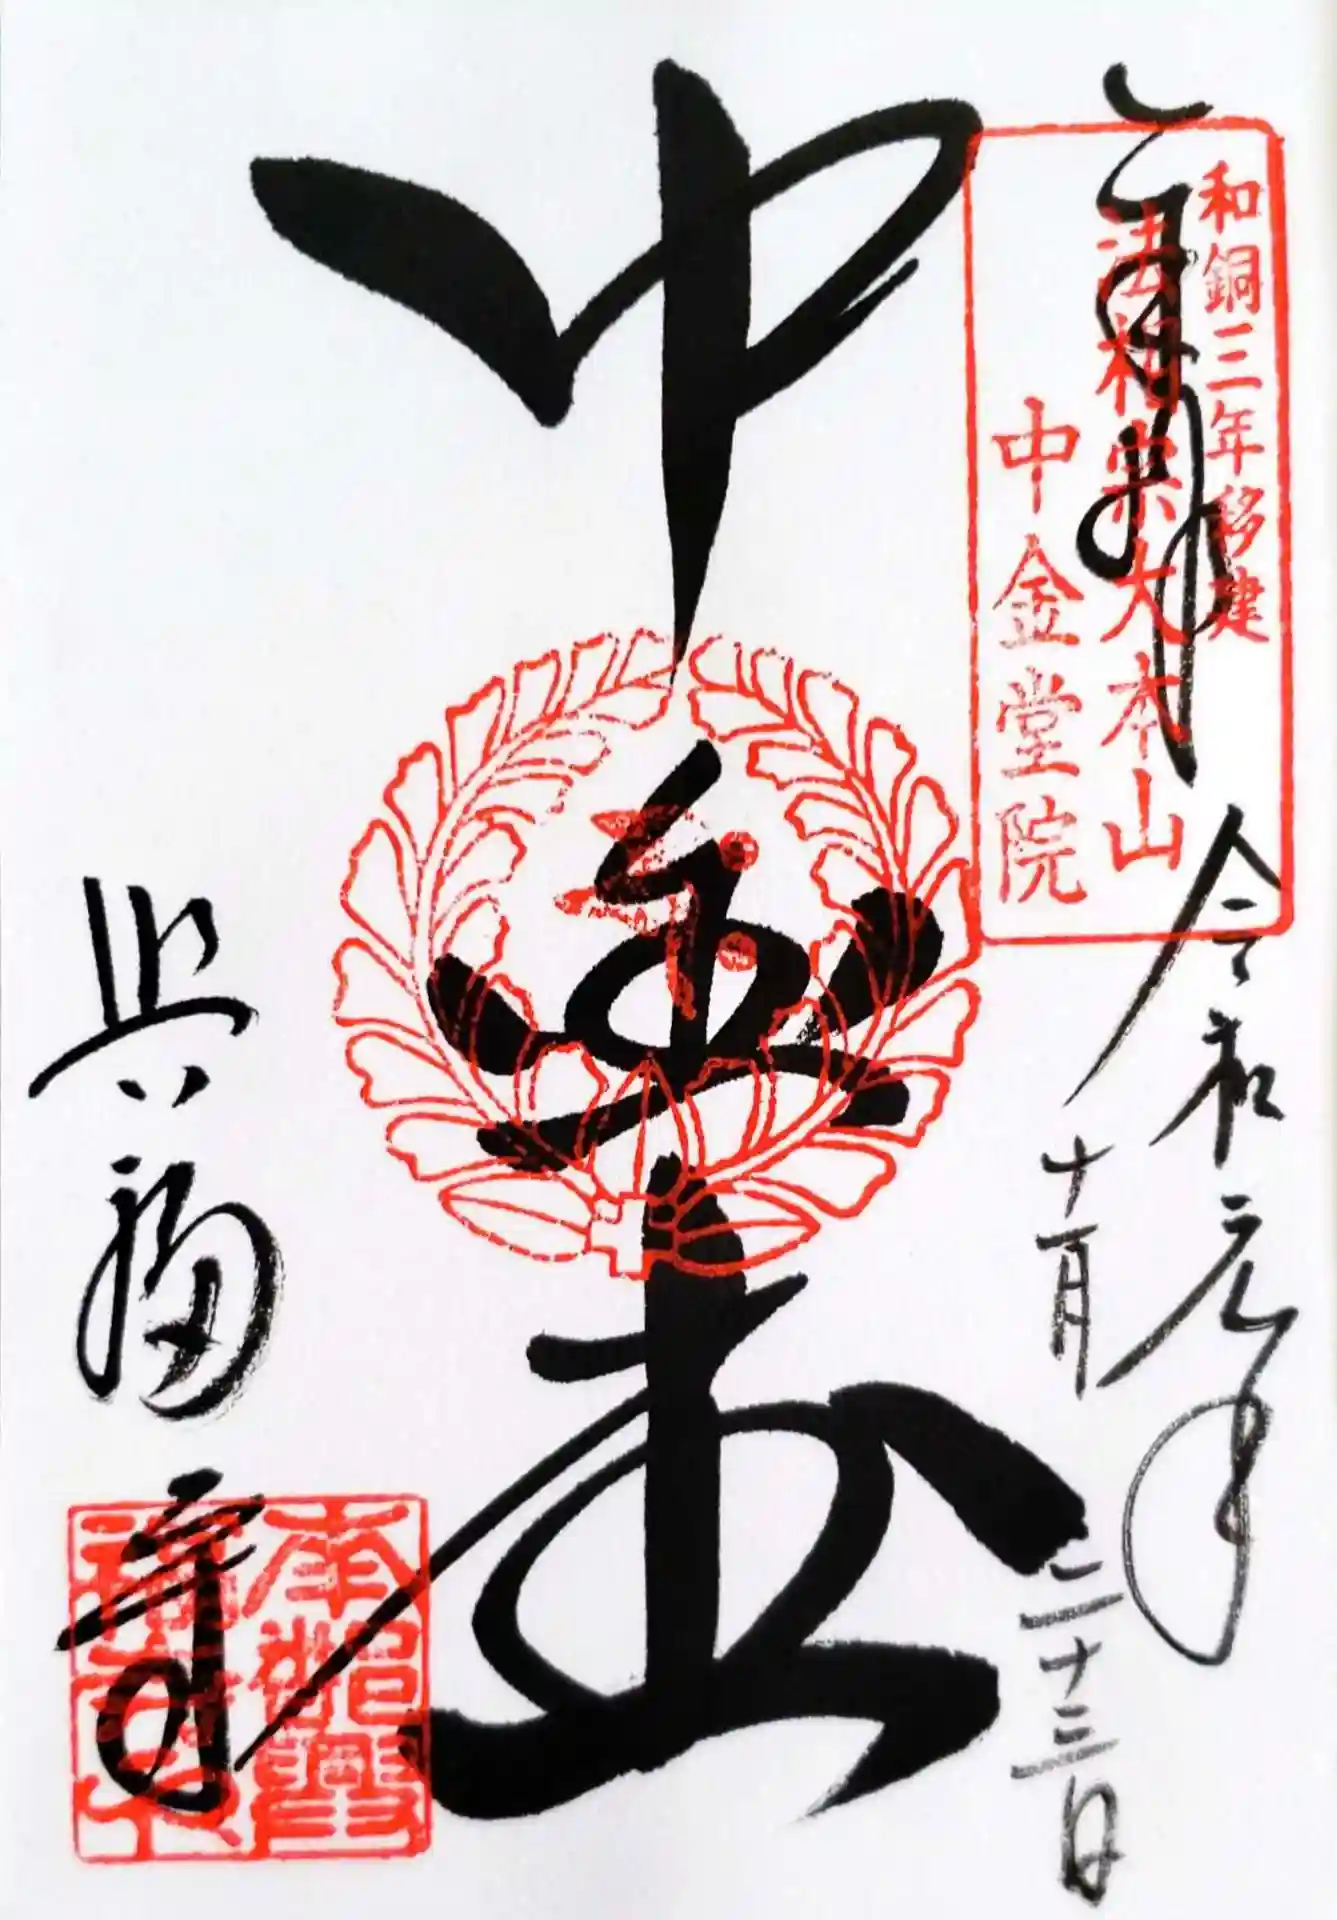 奉拝
和銅三年移建
法相宗大本山
中金堂院
令和元年
十一月
二十三日
中金堂
興福寺